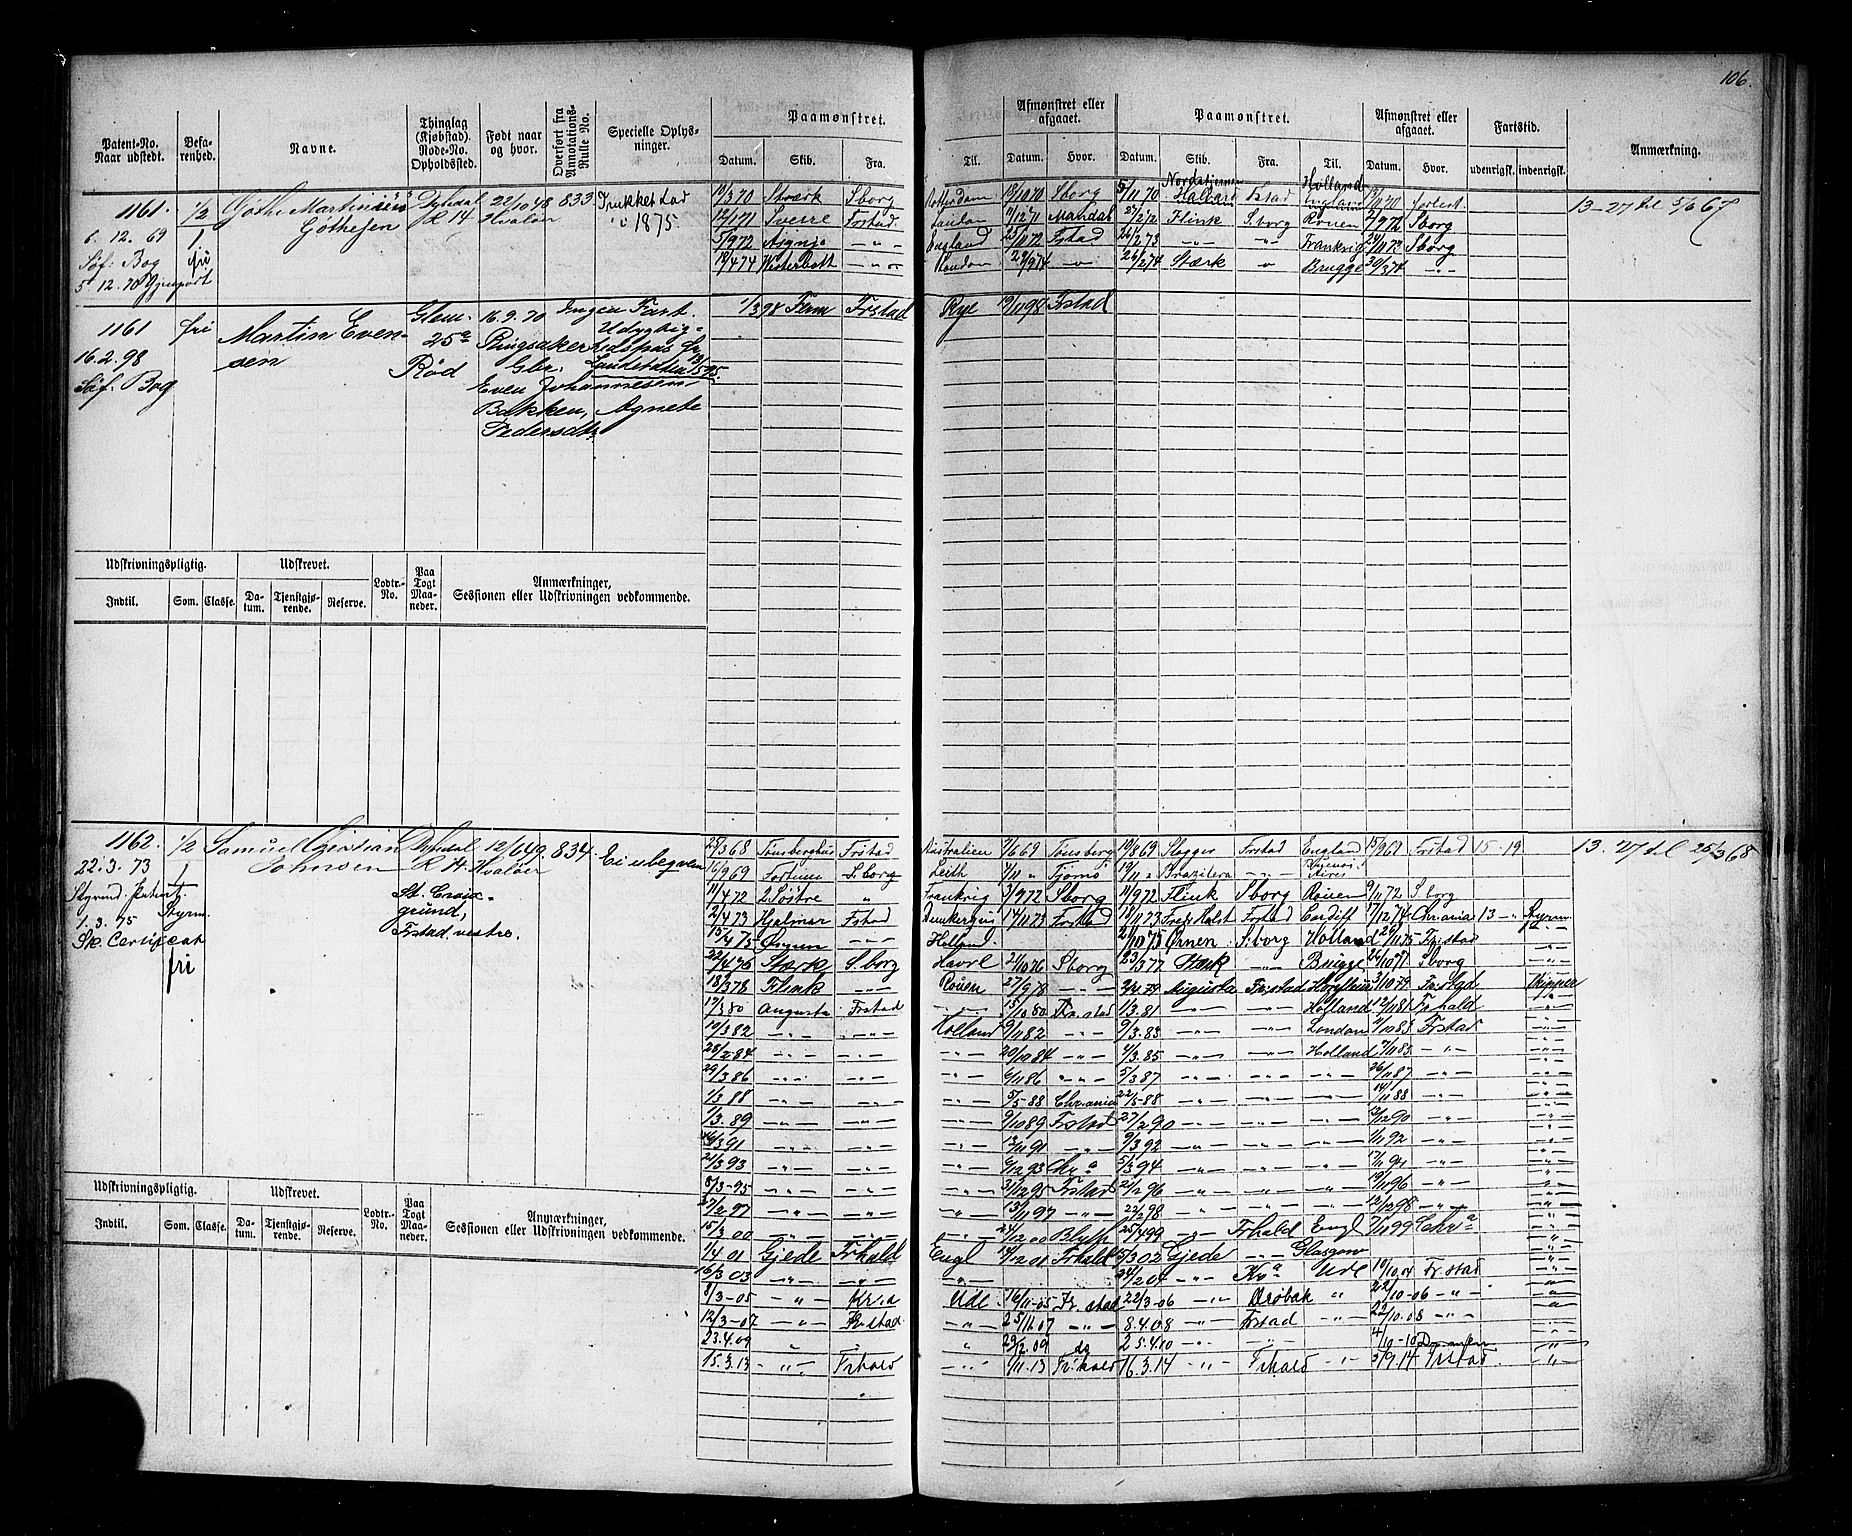 106.
Patent-No. Naar udstedt.
Befarenhed.
Navne.
Thinglag (Kjøbstad). Rode-No. Opholdssted.
Født naar og hvor.
Overført fra Annotations-Rulle No.
Specielle Oplysninger.
Paamønstret.
Datum. Skib. Fra.
Til.
Afmønstret eller afgaaet.
Datum. Hvor.
Paamønstret.
Datum. Skib. Fra. Til.
Afmønstret eller afgaaet.
Datum. Hvor.
Fartstid.
udenrigsk. indenrigsk.
Anmærkning.
1161. 1/2 Gøthe Martinius Dypedal 22/10 48 833 Trukket Lod
6. 12. 69 1 Gøthesen R 14 Hvaløer i 1875.
Søf. Bog fri
19/3 70 Stærk Sborg Rotterdam 18/10 70 Sborg 5/11 70 Nordstjernen Halvard Fstad Holland England
12/1 71 Sverre Frstad London 11/12 71 Mandal 27/2 72 Flink Sborg Rouen 2/9 72 Sborg
5/9 72 Signe -"- England 25/11 72 Fstad 26/2 73 -"- -"- Frankrig 24/11 73 Sborg
18/4 74 Westerbott -"- London 28/9 74 -"- 26/2 74 Stærk " Brügge 30/3 74 -"-
13-27 til 5/6 67
1161 fri Martin Evensen Glem. 16.9.70 Ingen Fart.
16.2.98 25a Ringsaker Udygtig-
Søf. Bog Rød Gbr. hedspas fr
Even Johannesen
Bakken, Agnete
Pedersdtr.
1/3 98 Fram Frstad Rye 19/11 98 Frstad
Udskrivningspligtig. Udskrevet. Lodtr.-No. Paa Togt Maaneder. Anmærkninger,
Indtil. Som. Classe. Datum. Tjenstgjørende. Reserve. Sessionen eller Udskrivningen vedkommende.
1162. 1/2 Samuel Christian Dypedal 12/6 49. 834. Ei ubegven
22. 3. 73 1 Johnsen R 14 Hvaløer
Styrmd. Patent Styrm. St. Croix-
1. 3. 75 grund,
Sk. Certificat Frstad vestre.
fri
25/3 68 Tønsberghus Frstad Australien 7/6 69 Tønsberg 19/8 69 Slogger Frstad England 15/9 69 Frstad 15-19
13. 27 til 25/3 68
16/9 69 Fortuna Sborg Leith 7/11 " Tjømø 19/11 " Brazilera -"-
11/4 72 2 Søstre " Frankrig 3/9 72 Sborg 11/9 72 Flink Sborg Rouen 9/11 72 Sborg
2/4 73 Hjalmar Fstad Dunkerque 14/11 73 Frstad 18/11 73 Cardiff 17/12 74 Chr.ania 13 -"- Styrm
15/4 75 Ørnen -"- Holland. 21/10 75 Ørnen Sborg Holland 29/11 75 Fr.stad -"-
22/4 76 Stærk Sborg Havre 21/10 76 Sborg 23/3 77 Stærk -"- Brügge 26/10 77 Sborg -"-
18/3 78 Flink -"- Rouen 27/9 78 -"- Augusta Fr.stad 3/10 79 Fr.stad Skipper
17/3 80 Augusta Frstad -"- 15/10 80 Fr.stad 1/3. 81 -"- -"- Holland 12/10 81 Frhald -"-
19/3 82 -"- -"- Holland 9/11 82 -"- 9/3. 83 -"- -"- London 4/10 83 Frstad -"-
28/2 84 -"- -"- -"- 20/10 84 -"- 4/3. 85 -"- -"- Holland 7/11 85 -"- -"-
29/3 86 -"- -"- -"- 6/11 86 -"- 5/3 87 -"- -"- -"- 26/11 87 -"- -"-
1/3 88 -"- -"- -"- 5/5 88 Chr.ania 22/5 88 -"- -"- -"- 14/11 88 -"- -"-
1/3. 89 -"- -"- 9/10 89 Frstad 27/2 90 -"- -"- -"- 2/12 90 -"- -"-
16/3 91 -"- -"- -"- 12/11 91 -"- 9/3 92 -"- -"- -"- 1/11 92 -"- -"-
21/3 93 -"- -"- -"- 6/12 93 Chr.a 5/3 94 -"- -"- -"- 17/11 94 -"- -"-
8/3-95 -"- -"- -"- 3/12 95 Frstad 21/2 96 -"- -"- -"- 19/10 96 -"- -"-
27/2 97 -"- -"- -"- 13/11 97 -"- 22/2 98 -"- -"- -"- 12/12 98 -"- -"-
15/3 00 -"- -"- -"- 24/12 00 Blyth 25/4 99 -"- Frhald Engl 7/11 99 Chr.a -"-
1/4 01 Gjede Frhald Engl 18/12 01 Frhald 5/3 02 Gjede -"- Glasgow -"-
16/3 03 -"- -"- -"- 24/2 04 -"- Kr.a Udl 19/10 04 Fr.stad -"-
8/3-05 -"- Kr.a Udl 16/11-05 Fr.stad 22/3-06 -"- Drøbak " 22/10-06 -"- -"-
12/3-07 -"- Fr.stad. " 25/11 07 -"- 8.4.08 -"- Frstad -"- 22/10.08 -"- -"-
23.4.09 " 29/12.09 do 25.4.10 -"- -"- 4/10-10 Drammen -"-
15.3.13 -"- Frhald -"- 1/11.13 Fr.hald 16.3.14 -"- Frhald -"- 3/9.14 Frstad -"-
Udskrivningspligtig. Udskrevet. Lodtr.-No. Paa Togt Maaneder. Anmærkninger,
Indtil. Som. Classe. Datum. Tjenstgjørende. Reserve. Sessionen eller Udskrivningen vedkommende.